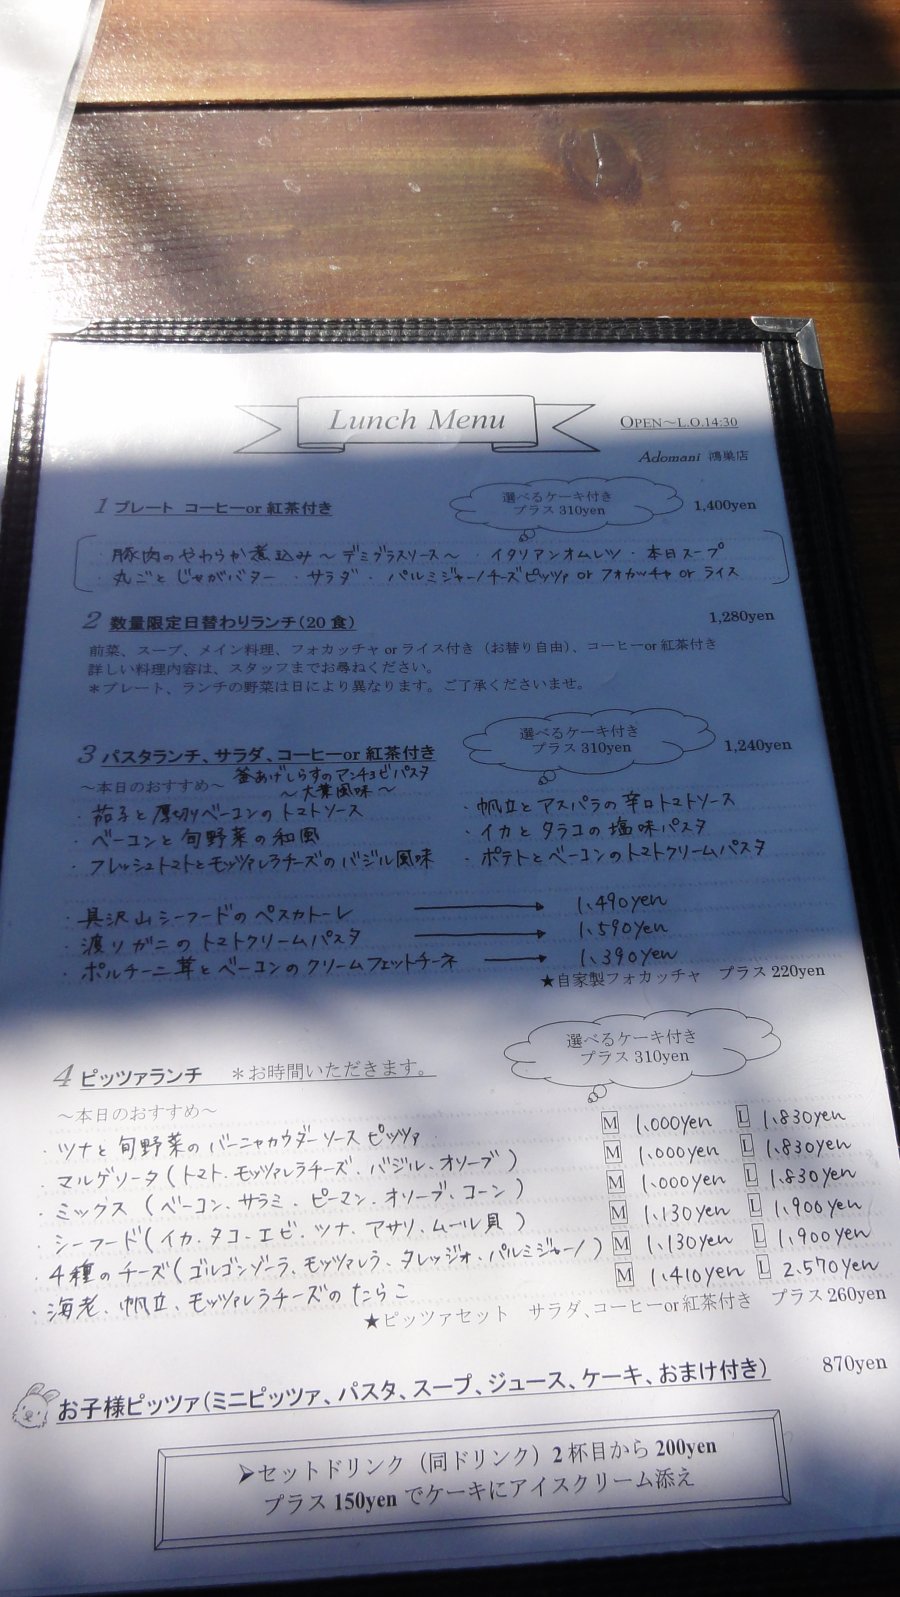 Lunch Menu
OPEN～L.O.14:30
Adomani 鴻巣店
1 プレート コーヒーor 紅茶付き
選べるケーキ付き
プラス 310yen
1,400yen
・豚肉のやわらか煮込み～デミグラスソース～ ・イタリアンオムレツ・本日スープ
・丸ごとじゃがバター ・サラダ・パルミジャーノチーズピッツァ or フォカッチャ or ライス
2 数量限定日替わりランチ(20 食)
1,280yen
前菜、スープ、メイン料理、フォカッチャ or ライス付き（お替り自由）、コーヒーor 紅茶付き
詳しい料理内容は、スタッフまでお尋ねください。
＊プレート、ランチの野菜は日により異なります。ご了承くださいませ。
選べるケーキ付き
プラス 310yen
3 パスタランチ、サラダ、コーヒーor 紅茶付き
1,240yen
～本日のおすすめ～ 釜あげしらすのアンチョビパスタ
～大葉風味～
・茄子と厚切ベーコンのトマトソース
・帆立とアスパラの辛口トマトソース
・ベーコンと旬野菜の和風
・イカとタラコの塩味パスタ
・フレッシュトマトとモッツァレラチーズのバジル風味
・ポテトとベーコンのトマトクリームパスタ
・具沢山シーフードのペスカトーレ → 1,490yen
・渡りガニのトマトクリームパスタ → 1,590yen
・ポルチーニ茸とベーコンのクリームフェットチーネ → 1,390yen
★自家製フォカッチャ プラス 220yen
選べるケーキ付き
プラス 310yen
4 ピッツァランチ ＊お時間いただきます。
～本日のおすすめ～
・ツナと旬野菜のバーニャカウダーソースピッツァ M 1,000yen L 1,830yen
・マルゲリータ(トマト、モッツァレラチーズ、バジル、オリーブ) M 1,000yen L 1,830yen
・ミックス (ベーコン、サラミ、ピーマン、オリーブ、コーン) M 1,000yen L 1,830yen
・シーフード(イカ、タコ、エビ、ツナ、アサリ、ムール貝) M 1,130yen L 1,900yen
・4種のチーズ(ゴルゴンゾーラ、モッツァレラ、タレッジオ、パルミジャーノ) M 1,130yen L 1,900yen
・海老、帆立、モッツァレラチーズのたらこ M 1,410yen L 2,570yen
★ピッツァセット サラダ、コーヒーor 紅茶付き プラス 260yen
お子様ピッツァ(ミニピッツァ、パスタ、スープ、ジュース、ケーキ、おまけ付き) 870yen
➢セットドリンク（同ドリンク）2 杯目から 200yen
プラス 150yen でケーキにアイスクリーム添え